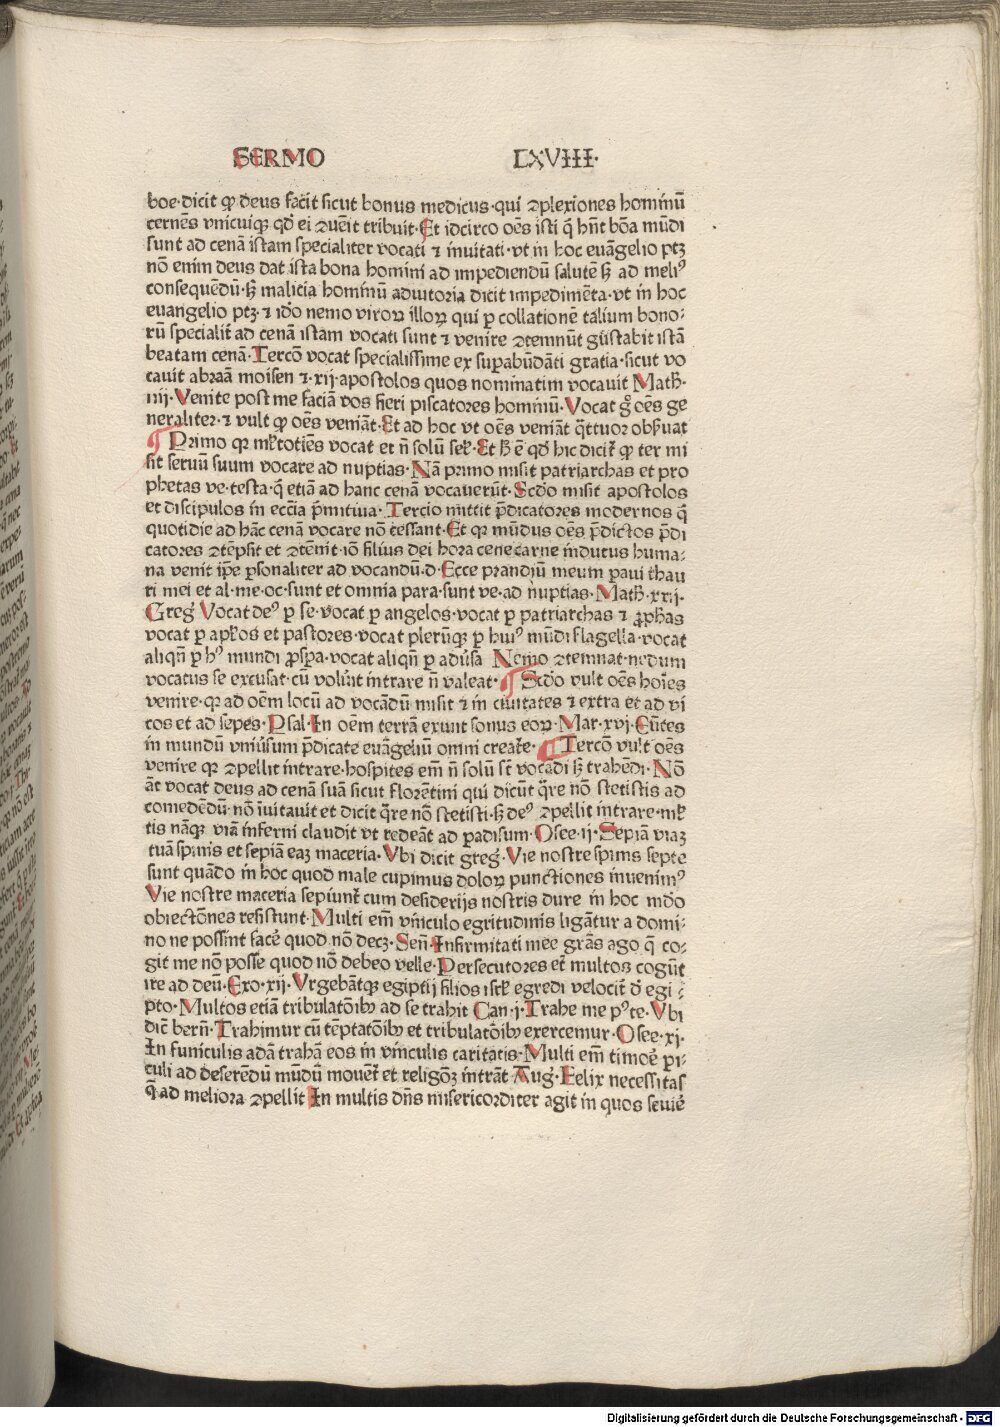 SERMO LXVIII·
boe·dicit ꝙ deus facit sicut bonus medicus·qui ꝯplexiones hominū
cernēs vnicuiqꝫ qđ ei ꝯuēit tribuit·Et idcirco oēs isti q̄ hn̄t bōa mūdi
sunt ad cenā istam specialiter vocati ⁊ inuitati·vt in hoc euāgelio ptꝫ
nō enim deus dat ista bona homini ad impediendū salutē sꝫ ad meliꝰ
consequēdū·sꝫ malicia hominū adiutoria dicit impedimēta·vt in hoc
euangelio ptꝫ·⁊ idō nemo viroꝝ illoꝝ qui ꝑ collationē talium bono-
rū specialiť ad cenā istam vocati sunt ⁊ venire ꝯtemnūt gūstabit istā
beatam cenā·Tercō vocat specialissime ex suꝑabūdāti gratia·sicut vo
cauit abraā moisen ⁊·xij·apostolos quos nominatim vocauit Math·
iiij·Venite post me faciā vos fieri piscatores hominū·Vocat gͦ oēs ge
neraliter·⁊ vult ꝙ oēs veniāt·Et ad hoc vt oēs veniāt q̄ttuor obſuat
¶Primo qꝛ mľtotiēs vocat et n̄ solū seľ·Et ħ ē qđ hic diciť ꝙ ter mi
sit seruū suum vocare ad nuptias·Nā primo misit patriarchas et pro
phetas ve·testa·q̄ etiā ad hanc cenā vocauerūt·Scđo misit apostolos
et discipulos in ecc̄ia p̄mitiua·Tercio mittit p̄dicatores modernos q̄
quotidie ad hāc cenā vocare nō cessant·Et qꝛ mūdus oēs p̄dictos p̄di
catores ꝯtēpsit et ꝯtēnit·iō filius dei hora cene carne indutus huma-
na venit ip̄e ꝑsonaliter ad vocandū·d·Ecce prandiū meum paui thau
ri mei et al·me·oc·sunt et omnia para·sunt ve·ad nuptias·Math·xxij·
Greḡ Vocat deꝰ ꝑ se·vocat ꝑ angelos·vocat ꝑ patriarchas ⁊ ꝓphas
vocat ꝑ apľos et pastores·vocat plerūqꝫ ꝑ huiꝰ mūdi flagella·vocat
aliqn̄ ꝑ hꝰ mundi ꝓsꝑa·vocat aliqn̄ ꝑ aduſa Nemo ꝯtemnat·nedum
vocatus se excusat·cū voluīt intrare n̄ valeat·¶Scđo vult oēs hoīes
venire·qꝛ ad oēm locū ad vocādū misit ⁊ in ciuitates ⁊ extra et ad vi
cos et ad sepes·Psal·In oēm terrā exiuit sonus eoꝝ·Mar·xvi·Eūtes
in mundū vniūsum p̄dicate euāgeliū omni creatē·¶Tercō vult oēs
venire qꝛ ꝯpellit intrare·hospites em̄ n̄ solū sť vocādi sꝫ trahēdi·Nō
āt vocat deus ad cenā suā sicut florentini qui dicūt q̄re nō stetistis ad
comedēdū·nō īuitauīt et dicit q̄re nō stetisti·sꝫ deꝰ ꝯpellit intrare·mľ
tis nāqꝫ viā inferni claudit vt redeāt ad ꝑadisum·Osee·ij·Sepiā viaꝫ
tuā spinis et sepiā eaꝫ maceria·Vbi dicit greḡ·Vie nostre spinis septe
sunt quādo in hoc quod male cupimus doloꝝ punctiones inuenimꝰ
Vie nostre maceria sepiunť cum desiderijs nostris dure in hoc mđo
obiectōnes resistunt·Multi em̄ vinculo egritudinis ligātur a domi-
no ne possint facē quod nō decꝫ·Sen̄·Infirmitati mee gr̄as ago q̄ co-
git me nō posse quod nō debeo velle·Persecutores eť multos cogūt
ire ad deū·Exo·xij·Vrgebātqꝫ egiptij filios isrľ egredi velociť đ egi-
pto·Multos etiā tribulatōibꝫ ad se trahit Can·j·Trahe me pꝰte·Vbi
dic̄ bern̄·Trahimur cū tēptatōibꝫ et tribulatōibꝫ exercemur·Osee·xj·
In funiculis adā trahā eos in vinculis caritatis·Multi em̄ timoē ꝑi-
culi ad deserēdū mūdū mouēť et religōꝫ intrāt Auḡ·Felix necessitas
q̄ ad meliora ꝯpellit In multis dn̄s misericorditer agit in quos seuiē
Digitalisierung gefördert durch die Deutsche Forschungsgemeinschaft - DFG